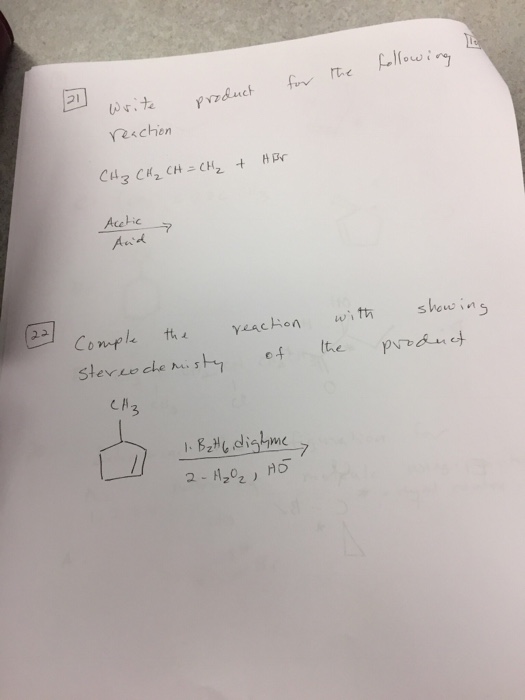 21 Write product for the following
reaction
CH3 CH2 CH = CH2 + HBr
Acetic
Acid
22 Comple the reaction with showing
stereochemisty of the product
CH3
1. B2H6, diglyme
2 - H2O2, HO-